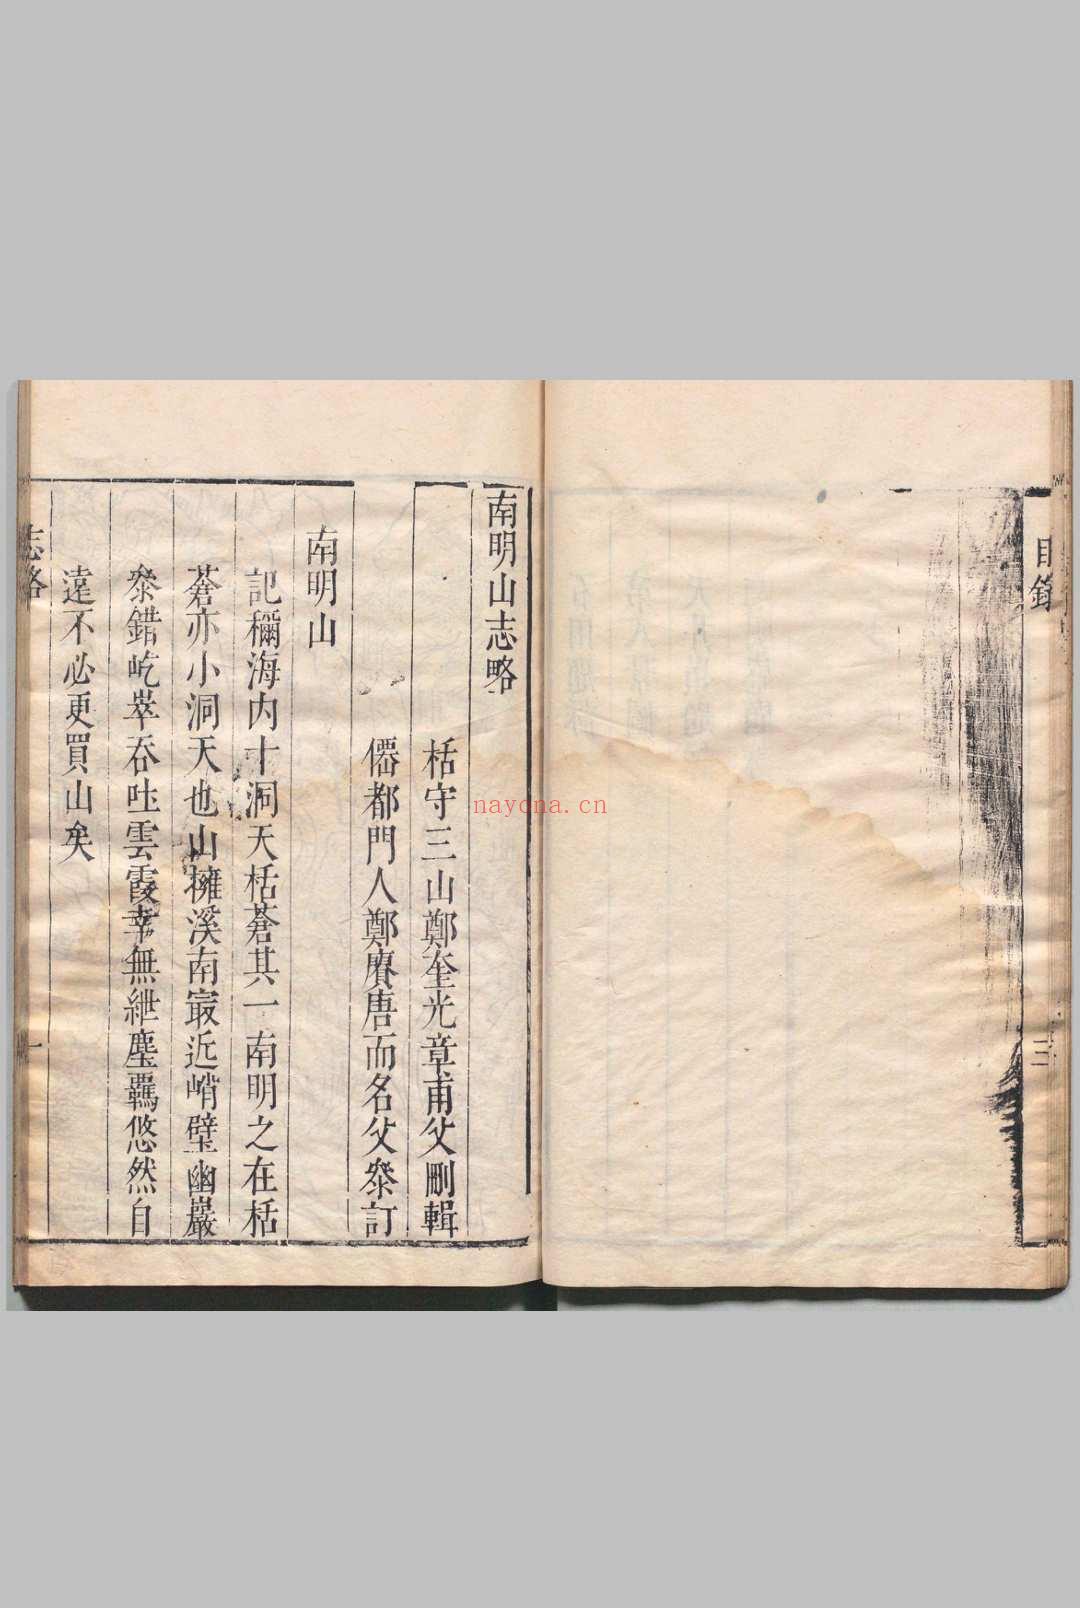 目錄
三
南明山志略
栝守三山鄭奎光章甫父刪輯
僊都門人鄭賡唐而名父叅訂
南明山
記穪海内十洞天栝蒼其一南明之在栝
蒼亦小洞天也山擁溪南㝡近峭壁幽巖
叅錯屹崒吞吐雲霞幸無紲塵羈悠然自
遠不必更買山矣
志略
一
nayona.cn